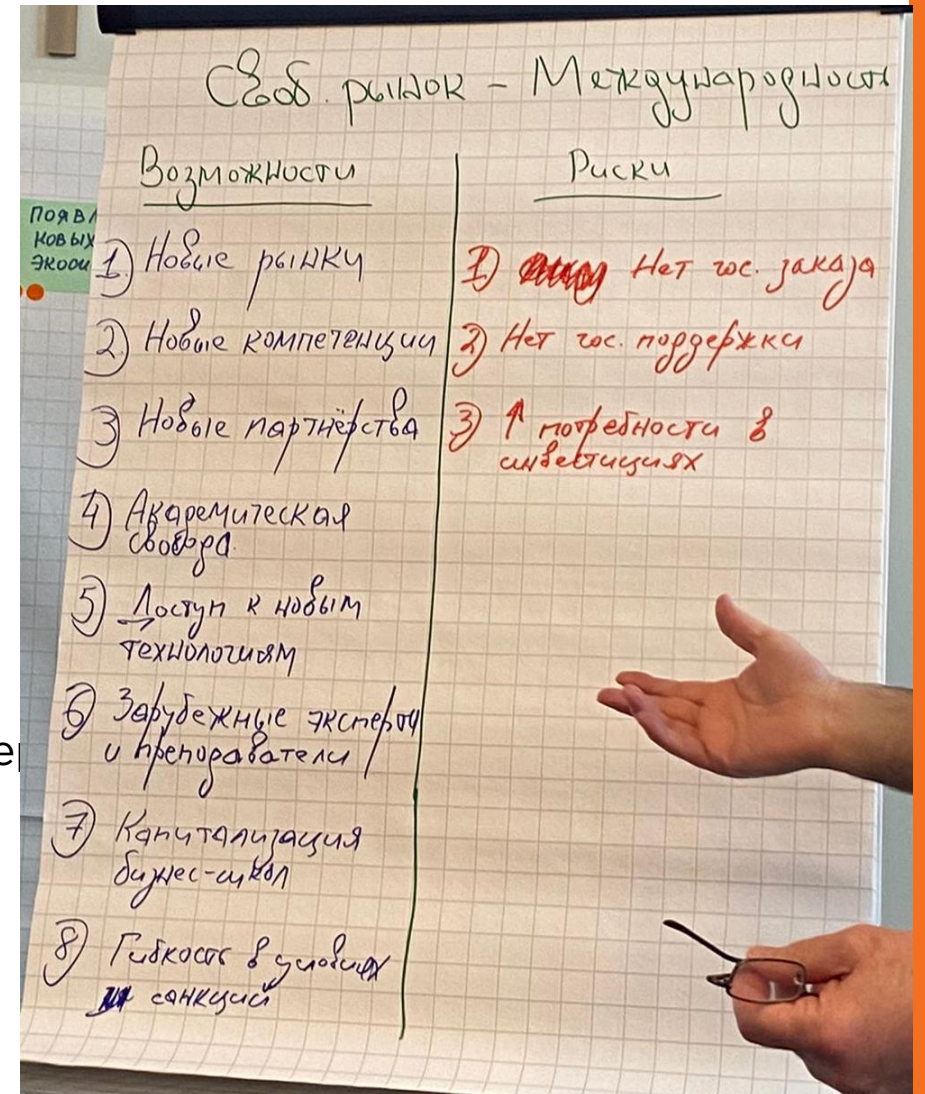 Своб. рынок - Международность
Возможности
1) Новые рынки
2) Новые компетенции
3) Новые партнёрства
4) Академическая
свобода
5) Доступ к новым
технологиям
6) Зарубежные эксперты
и преподаватели
7) Капитализация
бизнес-школ
8) Гибкость в условиях
санкций
Риски
1) Нет гос. заказа
2) Нет гос. поддержки
3) ↑ потребности в
инвестициях
ПОЯВЛ
НОВЫХ
ЭКОСИ